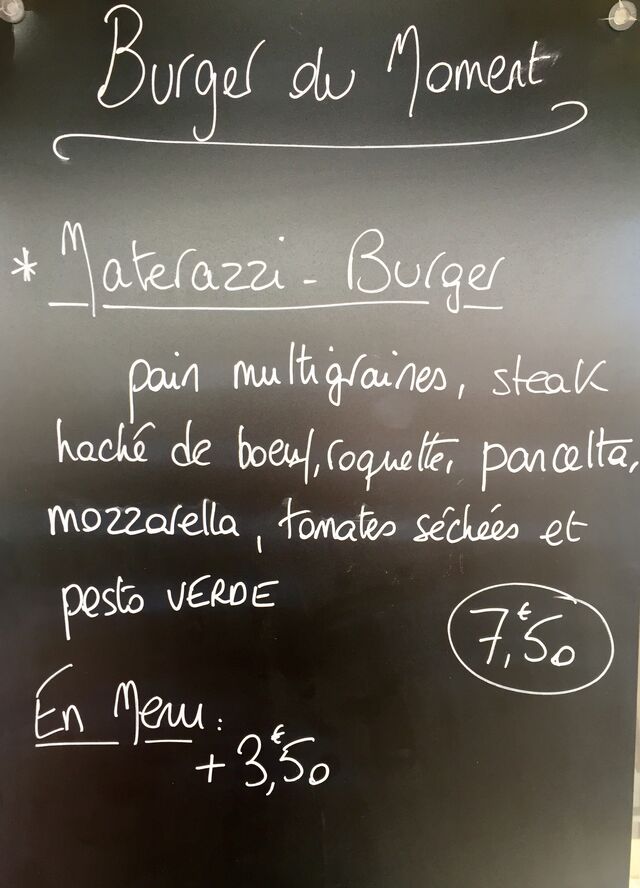 Burger du Moment
* Materazzi - Burger
pain multigraines, steak
haché de boeuf, roquette, pancetta,
mozzarella, tomates séchées et
pesto VERDE
7,€50
En Menu :
+ 3,€50